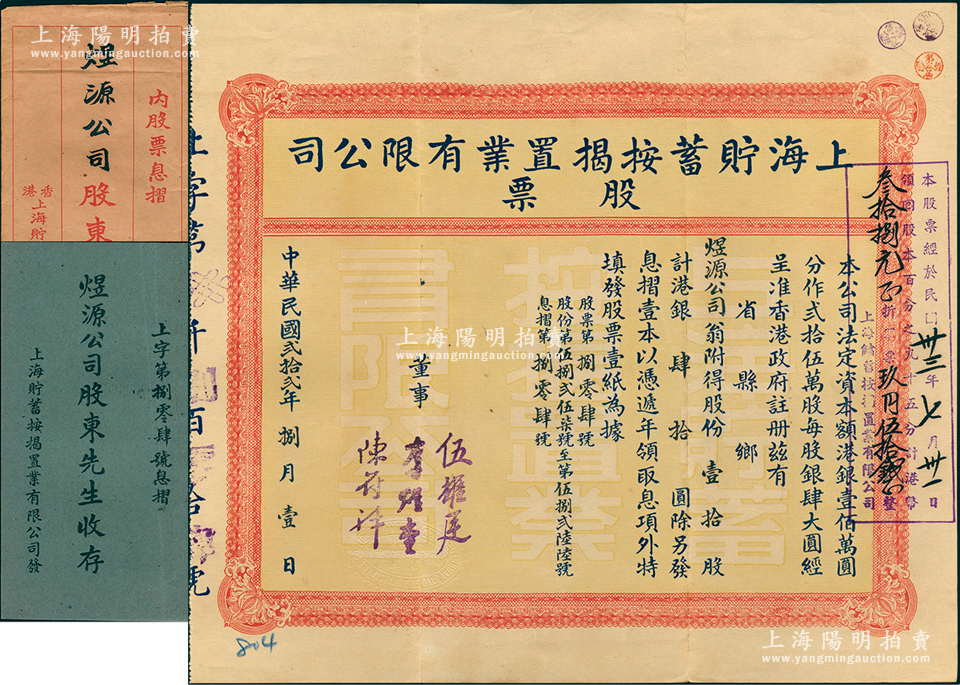 上海陽明拍賣
www.yangmingauction.com
内股票息摺
煜源公司股東
香港上海貯
上字第捌零肆號息摺
煜源公司股東先生收存
上海貯蓄按揭置業有限公司發
上海貯蓄按揭置業有限公司
股票
本公司法定資本額港銀壹佰萬圓
分作貳拾伍萬股每股銀肆大圓經
呈准香港政府註册茲有
省縣鄉
煜源公司翁附得股份壹拾股
計港銀肆拾圓除另發
息摺壹本以憑遞年領取息項外特
填發股票壹紙為據
股票第捌零肆號
股份第伍捌貳伍柒號至第伍捌貳陸陸號
息摺第捌零肆號
董事
伍耀廷
陳符祥
中華民國貳拾貳年捌月壹日
本股票經於民國卅三年七月卅一日
領回股本百分之九十五分計港幣
叁拾捌元正
上海貯蓄按揭置業有限公司
804
上海陽明拍賣
www.yangmingauction.com
上海陽明拍賣
www.yangmingauction.com